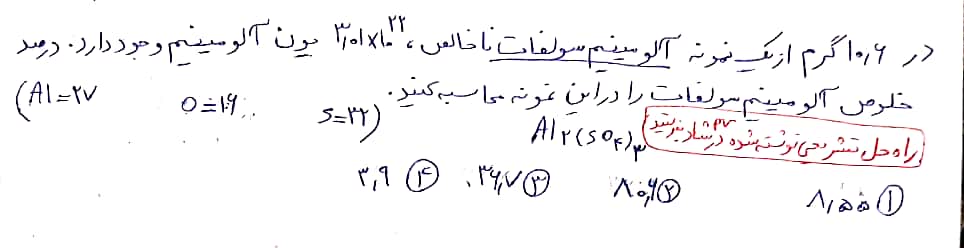 در ۱۰٫۶ گرم از یک نمونه آلومینیم سولفات ناخالص، ۳٫۰۱×۱۰^۲۲ یون آلومینیم وجود دارد. درصد
خلوص آلومینیم سولفات را در این نمونه محاسبه کنید. (Al=۲۷ O=۱۶ S=۳۲)
Al۲(SO۴)۳
راه حل تشریحی نوشته شده
① ۸٫۵۵ ② ۸۰٫۶ ③ ۳۶٫۷ ④ ۳٫۹